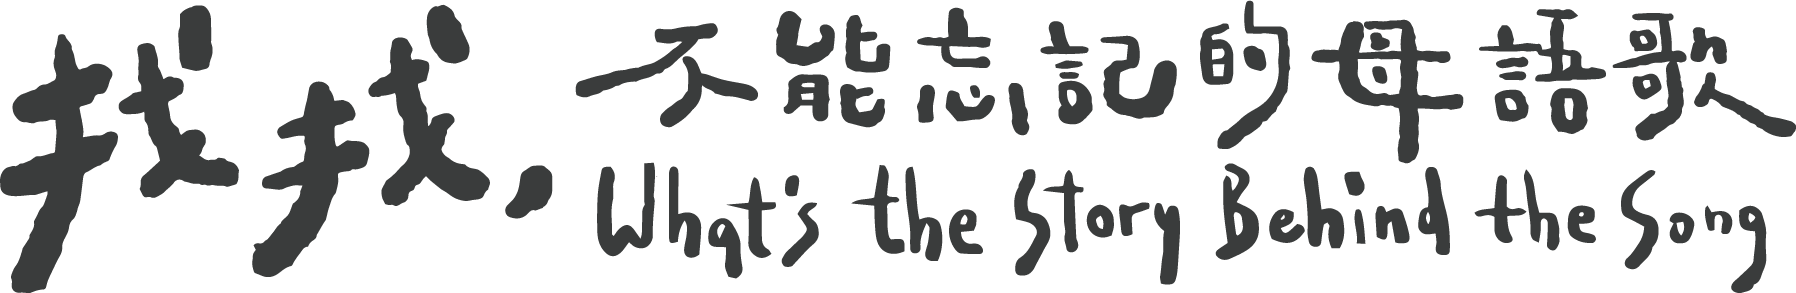 找找,不能忘記的母語歌
What's the Story Behind the Song